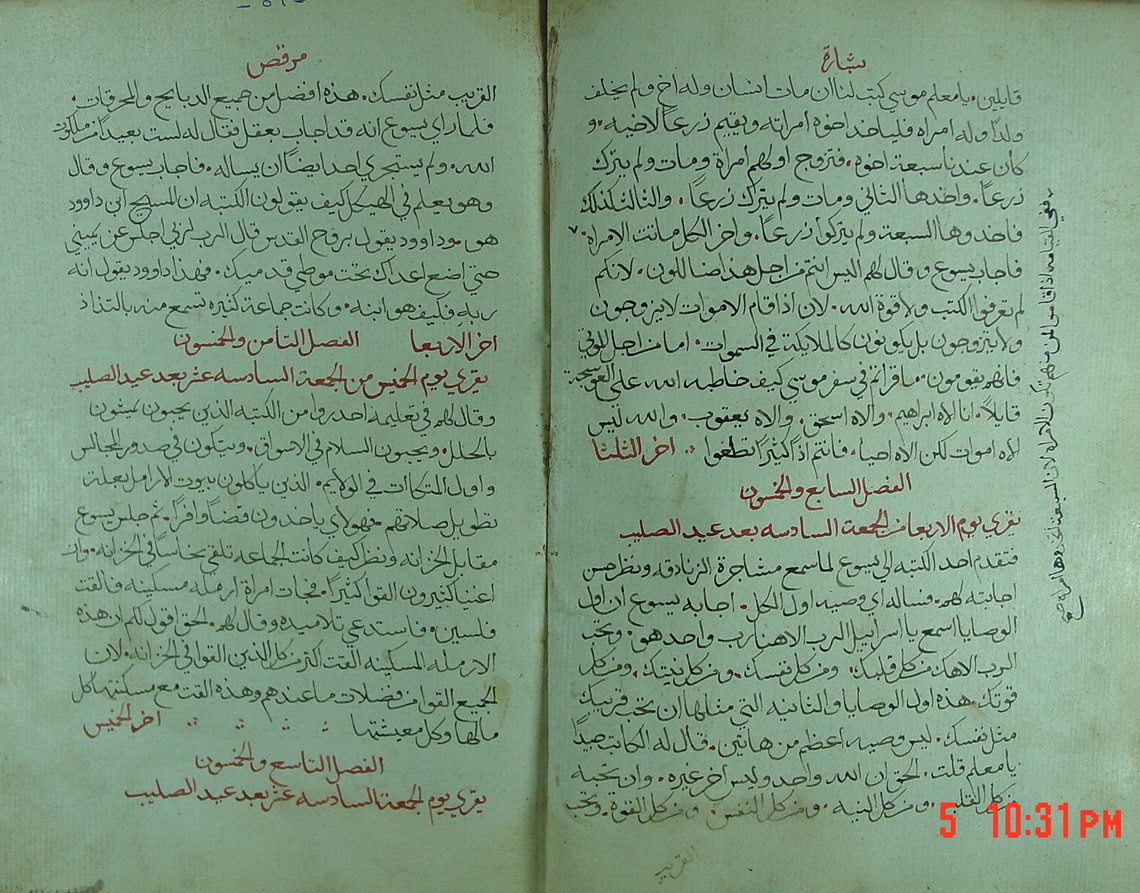 بشارة
قايلين. يا معلم موسي كتب لنا ان مات انسان وله اخ ولم يخلف
ولداً وله امراه فلياخد اخوه امراته ويقيم زرعاً لاخيه. و
كان عندنا سبعة اخوه. فتزوج اولهم امراة ومات ولم يترك
زرعاً. واخدها الثاني ومات ولم يترك زرعاً. والثالث كذلك
فاخدوها السبعة ولم يتركوا زرعاً. واخر الكل ماتت الامراه.
فاجاب يسوع وقال لهم اليس انتم من اجل هذا ضاللون. لانكم
لم تعرفوا الكتب ولا قوة الله. لان اذا قام الاموات لا يزوجون
ولا يتزوجون بل يكونون كالملايكة في السموات. اما من اجل الموتي
فانهم يقومون. ما قراتم في سفر موسي كيف خاطبه الله علي العوسجة
قايلاً. انا الاه ابراهيم. والاه اسحق. والاه يعقوب. والله ليس
الاه اموات لكن الاه احيا. فانتم اذاً كثيراً تطغوا اخر الثلثا
الفصل السابع والخمسون
يقري يوم الاربعا من الجمعة السادسه بعد عيد الصليب
فتقدم احد الكتبه الي يسوع لما سمع مشاجرة الزنادقه ونظر حسن
اجابته لهم. فساله اي وصيه اول الكل. اجابه يسوع ان اول
الوصايا اسمع يا اسراييل الرب الاهنا رب واحد هو. وتحب
الرب الاهك من كل قلبك. ومن كل نفسك. ومن كل نيتك. ومن كل
قوتك. هذه اول الوصايا والثانيه التي مثلها ان تحب قريبك
مثل نفسك. ليس وصيه اعظم من هاتين. قال له الكاتب جيداً
يا معلم قلت. الحق ان الله واحد وليس اخر غيره. وان تحبه
من كل القلب. ومن كل النيه. ومن كل النفس. ومن كل القوة. وتحب
القريب
ففي القيامه اذا قاموا لمن منهم تكون الامراه لان السبعة اتخدوها امراه صح
مرقص
القريب مثل نفسك. هذه افضل من جميع الدبايح والمحرقات.
فلما راي يسوع انه قد اجاب بعقل فقال له لست بعيداً من ملكوت
الله. ولم يستجري احد ايضاً ان يساله. فاجاب يسوع وقال
وهو يعلم في الهيكل كيف يقولون الكتبه ان المسيح ابن داوود
هو. وداوود يقول بروح القدس قال الرب لربي اجلس عن يميني
حتي اضع اعداك تحت موطي قدميك. فهذا داوود يقول انه
ربه فكيف هو ابنه. وكانت جماعة كثيره تسمع منه بالتذاذ
اخر الاربعا الفصل الثامن والخمسون
يقري يوم الخميس من الجمعة السادسه عشر بعد عيد الصليب
وقال لهم في تعليمه احدروا من الكتبه الذين يحبون يمشون
بالحلل. ويحبون السلام في الاسواق. ويتكون في صدور المجالس
واول المتكات في الولايم. الذين ياكلون بيوت الارامل بعلة
تطويل صلاتهم. فهولاي ياخدون قضاً وافراً. ثم جلس يسوع
مقابل الخزانه ونظر كيف كانت الجماعه تلقي نحاساً في الخزانه. وان
اغنيا كثيرون القوا كثيراً. فجات امراة ارمله مسكينه فالقت
فلسين. فاستدعي تلاميده وقال لهم. الحق اقول لكم ان هذه
الارمله المسكينه القت اكتر من كل الذين القوا في الخزانه. لان
الجميع القوا من فضلات ما عندهم وهذه القت مع مسكنتها كل
مالها وكل معيشتها اخر الخميس
الفصل التاسع والخمسون
يقري يوم الجمعة السادسه عشر بعد عيد الصليب
5 10:31 PM